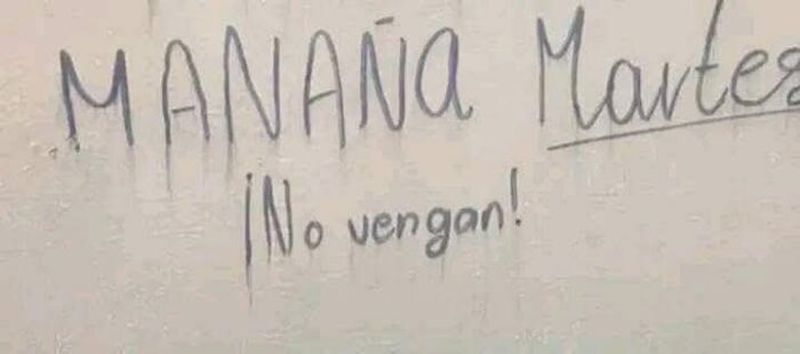 MANAÑa Martes
¡No vengan!